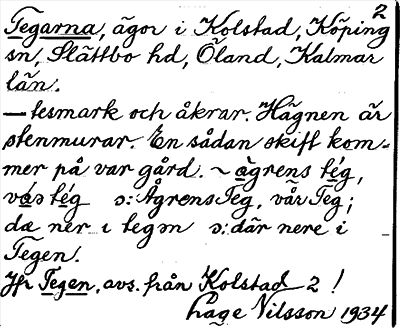 2
Tegarna, ägor i Kolstad, Köping
sn, Slättbo hd, Öland, Kalmar
län.
— tesmark och åkrar. Hägnen är
stenmurar. En sådan skift kom-
mer på var gård. ~ ågrens tég,
vås tég ɔ: Ågrens Teg, vår Teg;
dæ ner ı tegən ɔ: där nere i
Tegen.
Jfr Tegen, avs. från Kolstad 2!
Lage Nilsson 1934